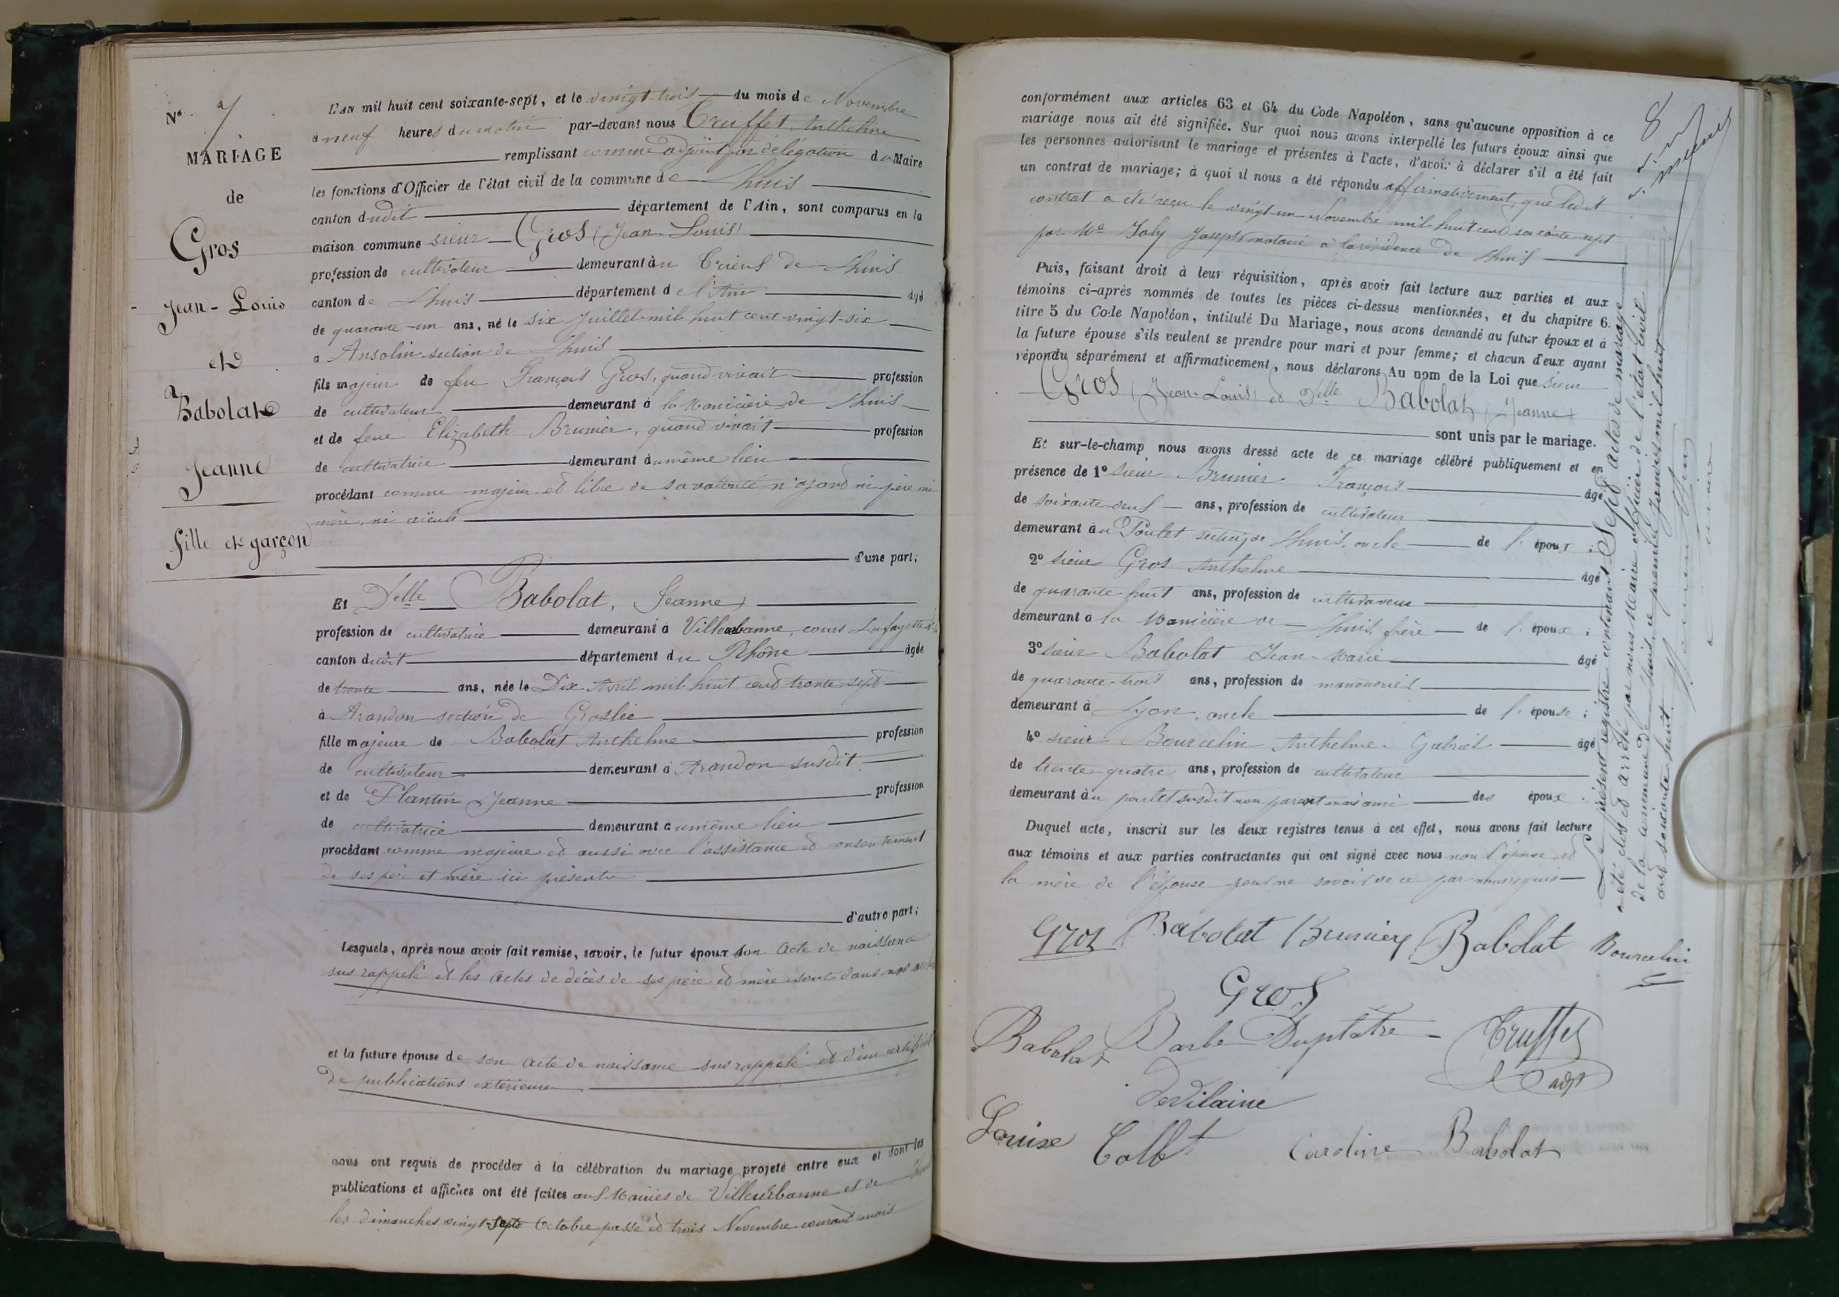 N° 7
MARIAGE
de
Gros
Jean-Louis
et
Babolat
Jeanne
fille et garçon
L'AN mil huit cent soixante-sept, et le vingt-trois du mois de Novembre
à neuf heures du matin par-devant nous Truffet, Anthelme
remplissant comme adjoint par délégation du Maire
les fonctions d'Officier de l'état civil de la commune de Lhuis
canton dudit département de l'Ain, sont comparus en la
maison commune sieur Gros (Jean-Louis)
profession de cultivateur demeurant à de Lhuis
canton de Lhuis département de l'Ain âgé
de quarante-un ans, né le six Juillet mil huit cent vingt-six
à Ansolin section de Lhuis
fils majeur de feu François Gros, quand vivait profession
de cultivateur demeurant à la de Lhuis
et de feue Elizabeth Brunier, quand vivait profession
de cultivatrice demeurant au même lieu
procédant comme majeur et libre de sa volonté n'ayant ni père ni
mère, ni aïeuls
d'une part;
Et Delle Babolat, Jeanne
profession de cultivatrice demeurant à Villeurbanne, cours Lafayette
canton dudit département du Rhône âgée
de trente ans, née le Dix Avril mil huit cent trente sept
à Arandon section de Groslée
fille majeure de Babolat Anthelme profession
de cultivateur demeurant à Arandon susdit
et de Plantin Jeanne profession
de cultivatrice demeurant au même lieu
procédant comme majeure et aussi avec l'assistance et consentement
de ses père et mère ici présents
d'autre part;
Lesquels, après nous avoir fait remise, savoir, le futur époux son acte de naissance
sus rappelé et les actes de décès de ses père et mère sont dans nos
et la future épouse de son acte de naissance sus rappelé et d'un certificat
de publications extérieures
nous ont requis de procéder à la célébration du mariage projeté entre eux et dont les
publications et affiches ont été faites aux Mairies de Villeurbanne et de Lhuis
les dimanches vingt-sept Octobre passé et trois Novembre courant mois
conformément aux articles 63 et 64 du Code Napoléon, sans qu'aucune opposition à ce
mariage nous ait été signifiée. Sur quoi nous avons interpellé les futurs époux ainsi que
les personnes autorisant le mariage et présentes à l'acte, d'avoir à déclarer s'il a été fait
un contrat de mariage; à quoi il nous a été répondu affirmativement, que ledit
contrat a été reçu le vingt un Novembre mil huit cent soixante sept
par Me Joseph notaire à la résidence de Lhuis
Puis, faisant droit à leur réquisition, après avoir fait lecture aux parties et aux
témoins ci-après nommés de toutes les pièces ci-dessus mentionnées, et du chapitre 6.
titre 5 du Code Napoléon, intitulé Du Mariage, nous avons demandé au futur époux et à
la future épouse s'ils veulent se prendre pour mari et pour femme; et chacun d'eux ayant
répondu séparément et affirmativement, nous déclarons Au nom de la Loi que sieur
Gros (Jean-Louis) et Delle Babolat (Jeanne)
sont unis par le mariage.
Et sur-le-champ nous avons dressé acte de ce mariage célébré publiquement et en
présence de 1° sieur Brunier François âgé
de soixante-deux ans, profession de cultivateur
demeurant au Poulet section de Lhuis, oncle de l'époux;
2° sieur Gros Anthelme âgé
de quarante-huit ans, profession de cultivateur
demeurant à la de Lhuis, frère de l'époux;
3° sieur Babolat Jean-Marie âgé
de quarante-trois ans, profession de
demeurant à Lyon, oncle de l'épouse;
4° sieur Bourcelin Anthelme Gabriel âgé
de trente-quatre ans, profession de cultivateur
demeurant au poulet susdit non parent mais ami des époux;
Duquel acte, inscrit sur les deux registres tenus à cet effet, nous avons fait lecture
aux témoins et aux parties contractantes qui ont signé avec nous non l'épouse et
la mère de l'épouse pour ne savoir de ce par nous requis
Gros Babolat Brunier Babolat Bourcelin
Gros
Babolat Barbe Duplatre Truffet
adjt
Devilaine
Louise Collet Caroline Babolat
Le présent registre contenant Sept actes de mariage
a été clos et arrêté par nous Maire officier de l'état civil
de la commune de Lhuis ce premier Janvier mil huit
cent soixante huit.
8